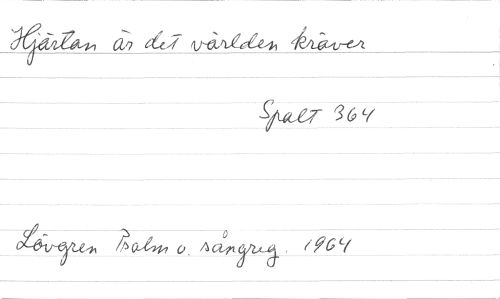 Hjärtan är det världen kräver
Spalt 364
Lövgren Psalm o. sångreg. 1964